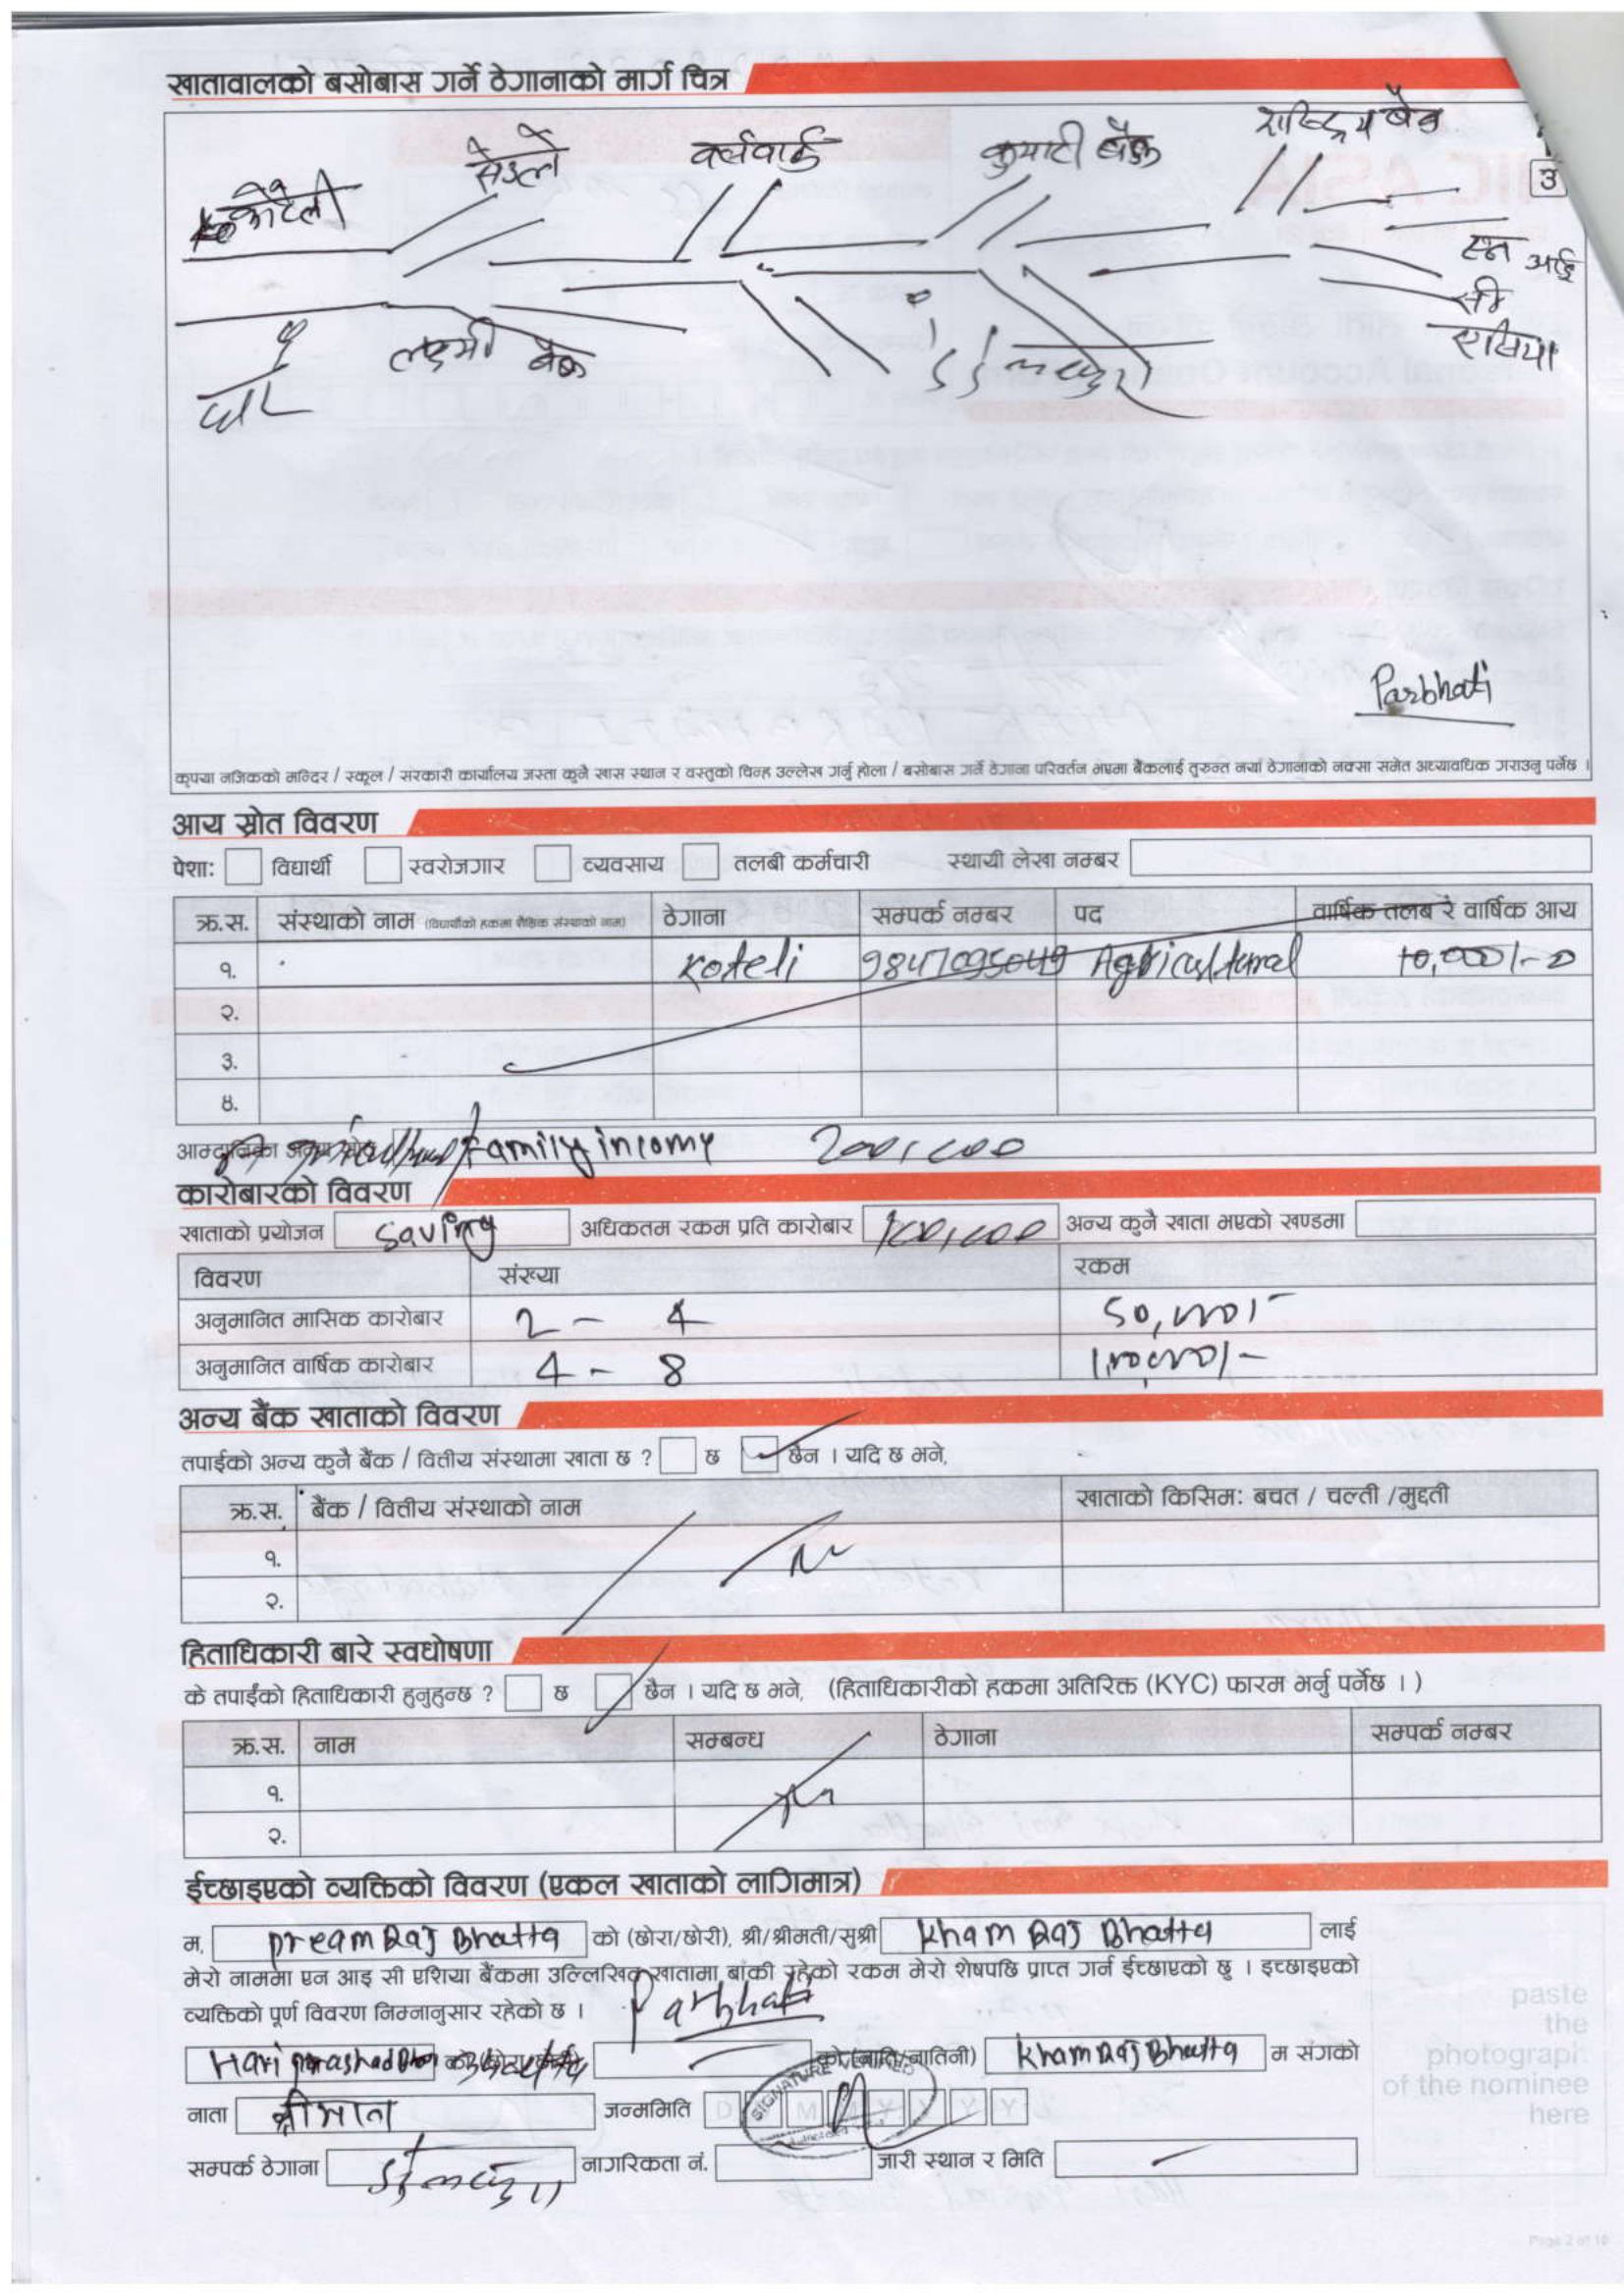 खातावालको बसोबास गर्ने ठेगानाको मार्ग चित्र
३
कोटेली
सेडले
वर्लवार्ड
कुमारी बैंक
राष्ट्रिय बैंक
एन आई
सी
एसिया
लक्ष्मी बैंक
घर
Parbhati
कृपया नजिकको मन्दिर / स्कूल / सरकारी कार्यालय जस्ता कुनै खास स्थान र वस्तुको चिन्ह उल्लेख गर्नु होला / बसोबास गर्ने ठेगाना परिवर्तन भएमा बैंकलाई तुरुन्त नयाँ ठेगानाको नक्सा समेत अध्यावधिक गराउनु पर्नेछ ।
आय स्रोत विवरण
पेशा: विद्यार्थी स्वरोजगार व्यवसाय तलबी कर्मचारी स्थायी लेखा नम्बर
क्र.स. संस्थाको नाम (विद्यार्थीको हकमा शैक्षिक संस्थाको नाम) ठेगाना सम्पर्क नम्बर पद वार्षिक तलब रे वार्षिक आय
१. Koteli 9847095049 Agricultural
२.
३.
४.
Family incomy 200,000
कारोबारको विवरण
खाताको प्रयोजन Saving अधिकतम रकम प्रति कारोबार 100,000 अन्य कुनै खाता भएको खण्डमा
विवरण संख्या रकम
अनुमानित मासिक कारोबार 2 - 4 50,000/-
अनुमानित वार्षिक कारोबार 4 - 8
अन्य बैंक खाताको विवरण
तपाईको अन्य कुनै बैंक / वित्तीय संस्थामा खाता छ ? छ छैन । यदि छ भने,
क्र.स. बैंक / वित्तीय संस्थाको नाम खाताको किसिम: बचत / चल्ती /मुद्दती
१.
२.
हिताधिकारी बारे स्वघोषणा
के तपाईंको हिताधिकारी हुनुहुन्छ ? छ छैन । यदि छ भने, (हिताधिकारीको हकमा अतिरिक्त (KYC) फारम भर्नु पर्नेछ । )
क्र.स. नाम सम्बन्ध ठेगाना सम्पर्क नम्बर
१.
२.
ईच्छाइएको व्यक्तिको विवरण (एकल खाताको लागिमात्र)
म, Pream Raj Bhatta को (छोरा/छोरी), श्री/श्रीमती/सुश्री Kham Raj Bhatta लाई
मेरो नाममा एन आइ सी एशिया बैंकमा उल्लिखित खातामा बांकी रहेको रकम मेरो शेषपछि प्राप्त गर्न ईच्छाएको छु । इच्छाइएको
व्यक्तिको पूर्ण विवरण निम्नानुसार रहेको छ । Parbhati
Hari को (नाति/नातिनी) Kham Raj Bhatta म संगको
नाता श्रीमान जन्ममिति D M M Y Y Y Y
SIGNATURE
सम्पर्क ठेगाना नागरिकता नं. जारी स्थान र मिति
paste
the
photograph
of the nominee
here
Page 2 of 10